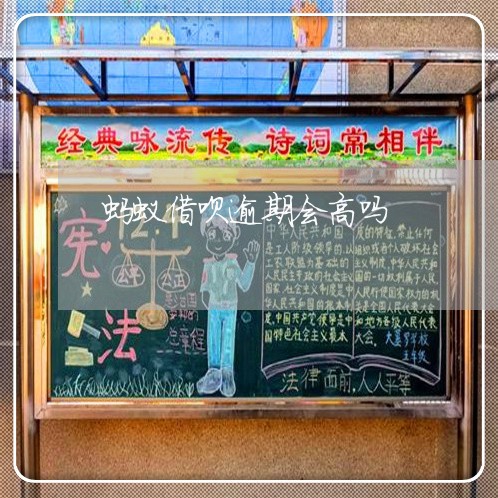 经典咏流传 诗词常相伴
蚂蚁借吹逾期会高吗
宪
法
12.4
公平
公正
总章程
中华人民共和国
是工人阶级领导的,以
工农联盟为基础的
人民民主专政的社会主义
国家,社会主义制度是中
华人民共和国的根本制
度,中国共产党领导是中
国特色社会主义最本
质的特征,禁止任何
组织或者个人破坏社会
主义制度,中华人民共和
国的一切权利属于人民,
人民行使国家权力的机
关是全国人民代表大会
和地方各级人民代表
大会。
五年级
法律面前,人人平等